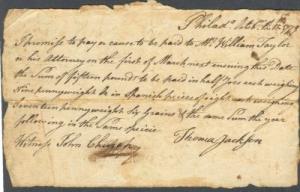 Philad.ª Octob.r 12th 1779
I Promise to pay or cause to be paid to Mr. William Taylor
or his Attorney on the first of March next ensuing this Date
the Sum of fifteen pounds to be paid in half Joes each weighing
Nine pennyweight & in Spanish pieces of eight each weighing
Seventeen pennyweight Six Grains & the same Sum the year
following in the Same specie
Witness John Thomas Jackson